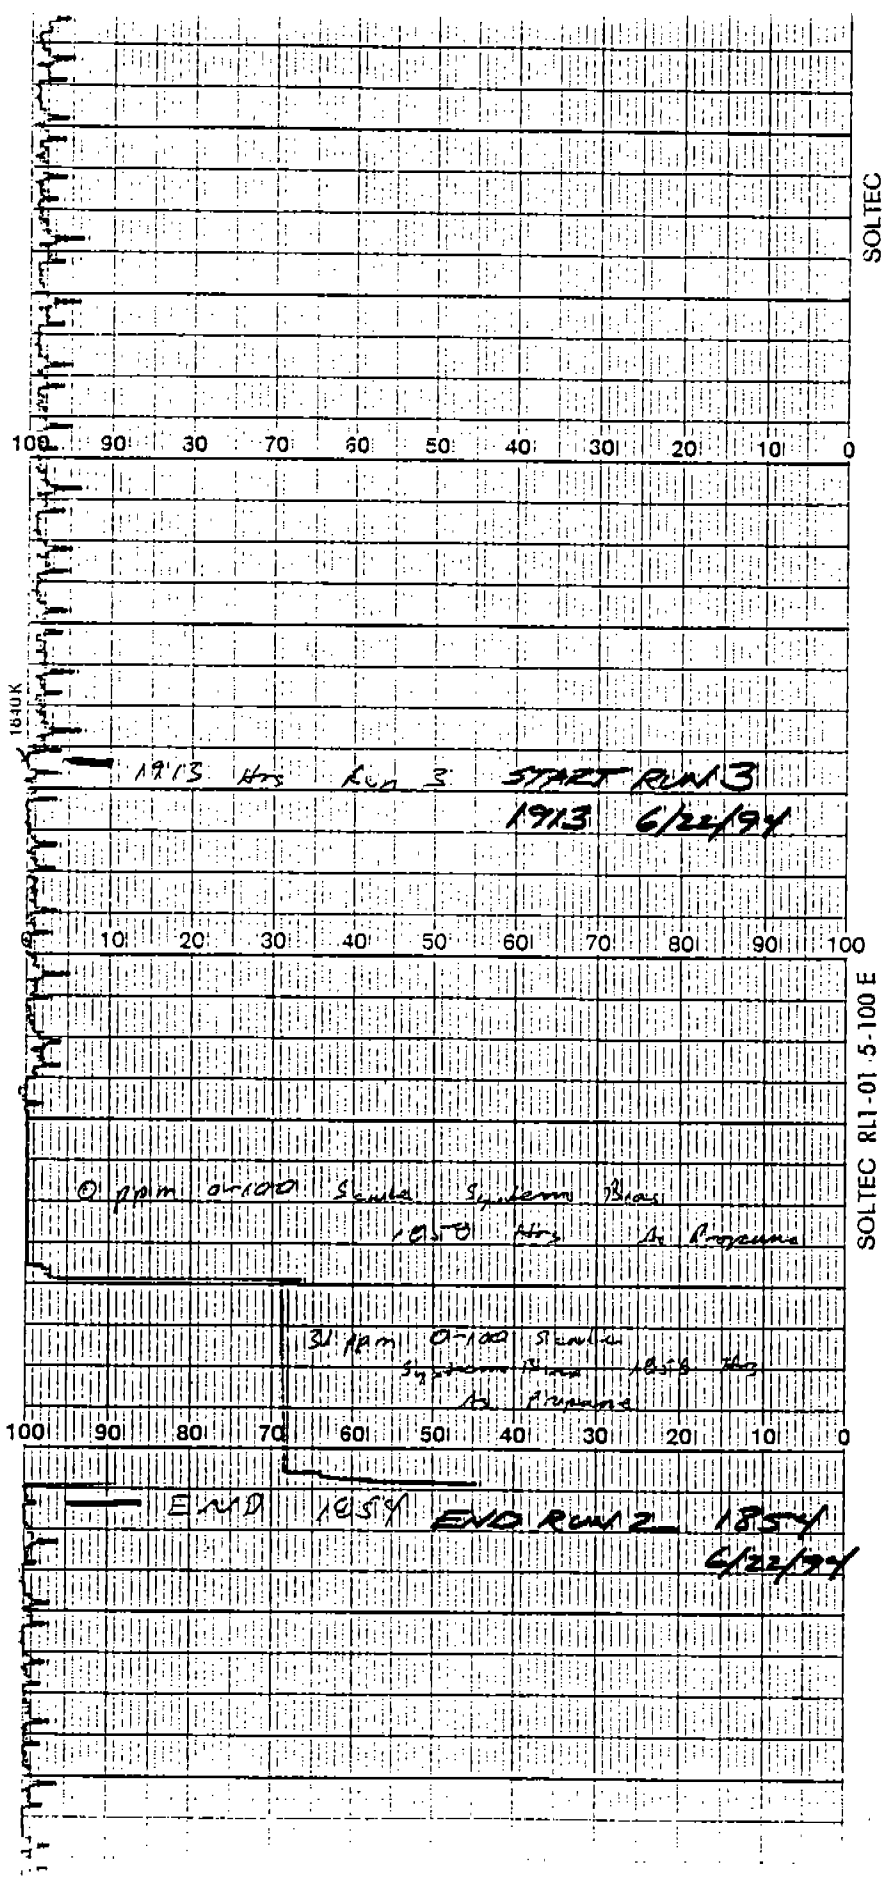 SOLTEC
100 90 30 70 60 50 40 30 20 10 0
1840K
1913 Hrs Run 3 START RUN 3
1913 6/22/94
0 10 20 30 40 50 60 70 80 90 100
SOLTEC RL1-01 5-100 E
0 ppm 0-100 Scale System Bias
1858 Hrs As Propane
31 ppm 0-100 Scale
System Bias 1856 Hrs
As Propane
100 90 80 70 60 50 40 30 20 10 0
END 1854 END RUN 2 1854
6/22/94